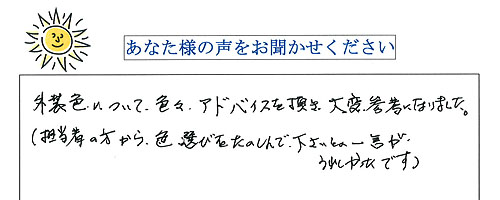 あなた様の声をお聞かせください
外装色について、色々、アドバイスを頂き、大変、参考になりました。
(担当者の方から、色選びをたのしんで、下さいとの一言が、
うれしかったです)